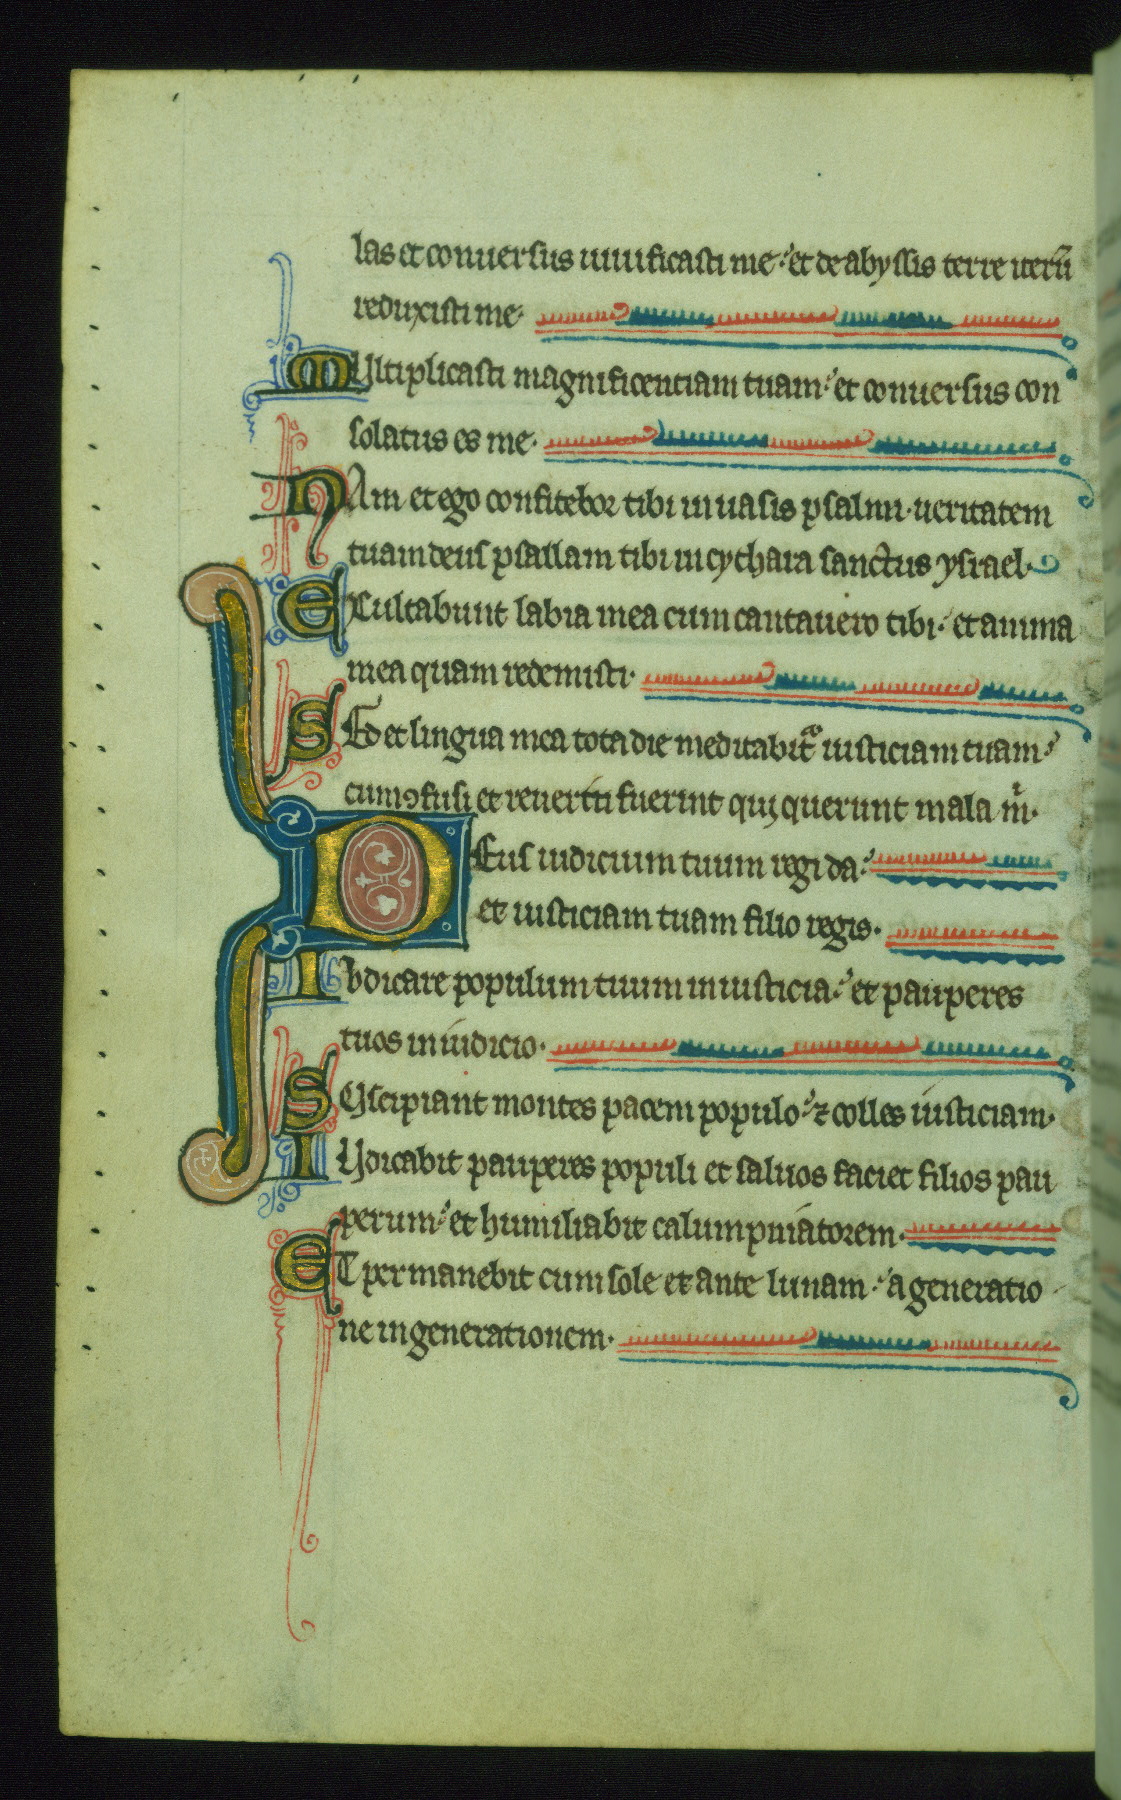 las et conuersus uiuificasti me: et de abyssis terre iterũ
reduxisti me.
MUltiplicasti magnificentiam tuam: et conuersus con
solatus es me.
NAm et ego confitebor tibi in uasis psalmi. ueritatem
tuam deus psallam tibi in cythara sanctus ysrael.
EXultabunt labia mea cum cantauero tibi. et anima
mea quam redemisti.
SEd et lingua mea tota die meditabit᷑ iusticiam tuam:
cum ꝯfusi et reueriti fuerint qui querunt mala m̃.
DEus iudicium tuum regi da:
et iusticiam tuam filio regis.
IUdicare populum tuum in iusticia: et pauperes
tuos in iudicio.
SUscipiant montes pacem populo: ⁊ colles iusticiam.
IUdicabit pauperes populi et saluos faciet filios pau
perum: et humiliabit calumpniatorem.
ET permanebit cum sole et ante lunam: a generatio
ne in generationem.